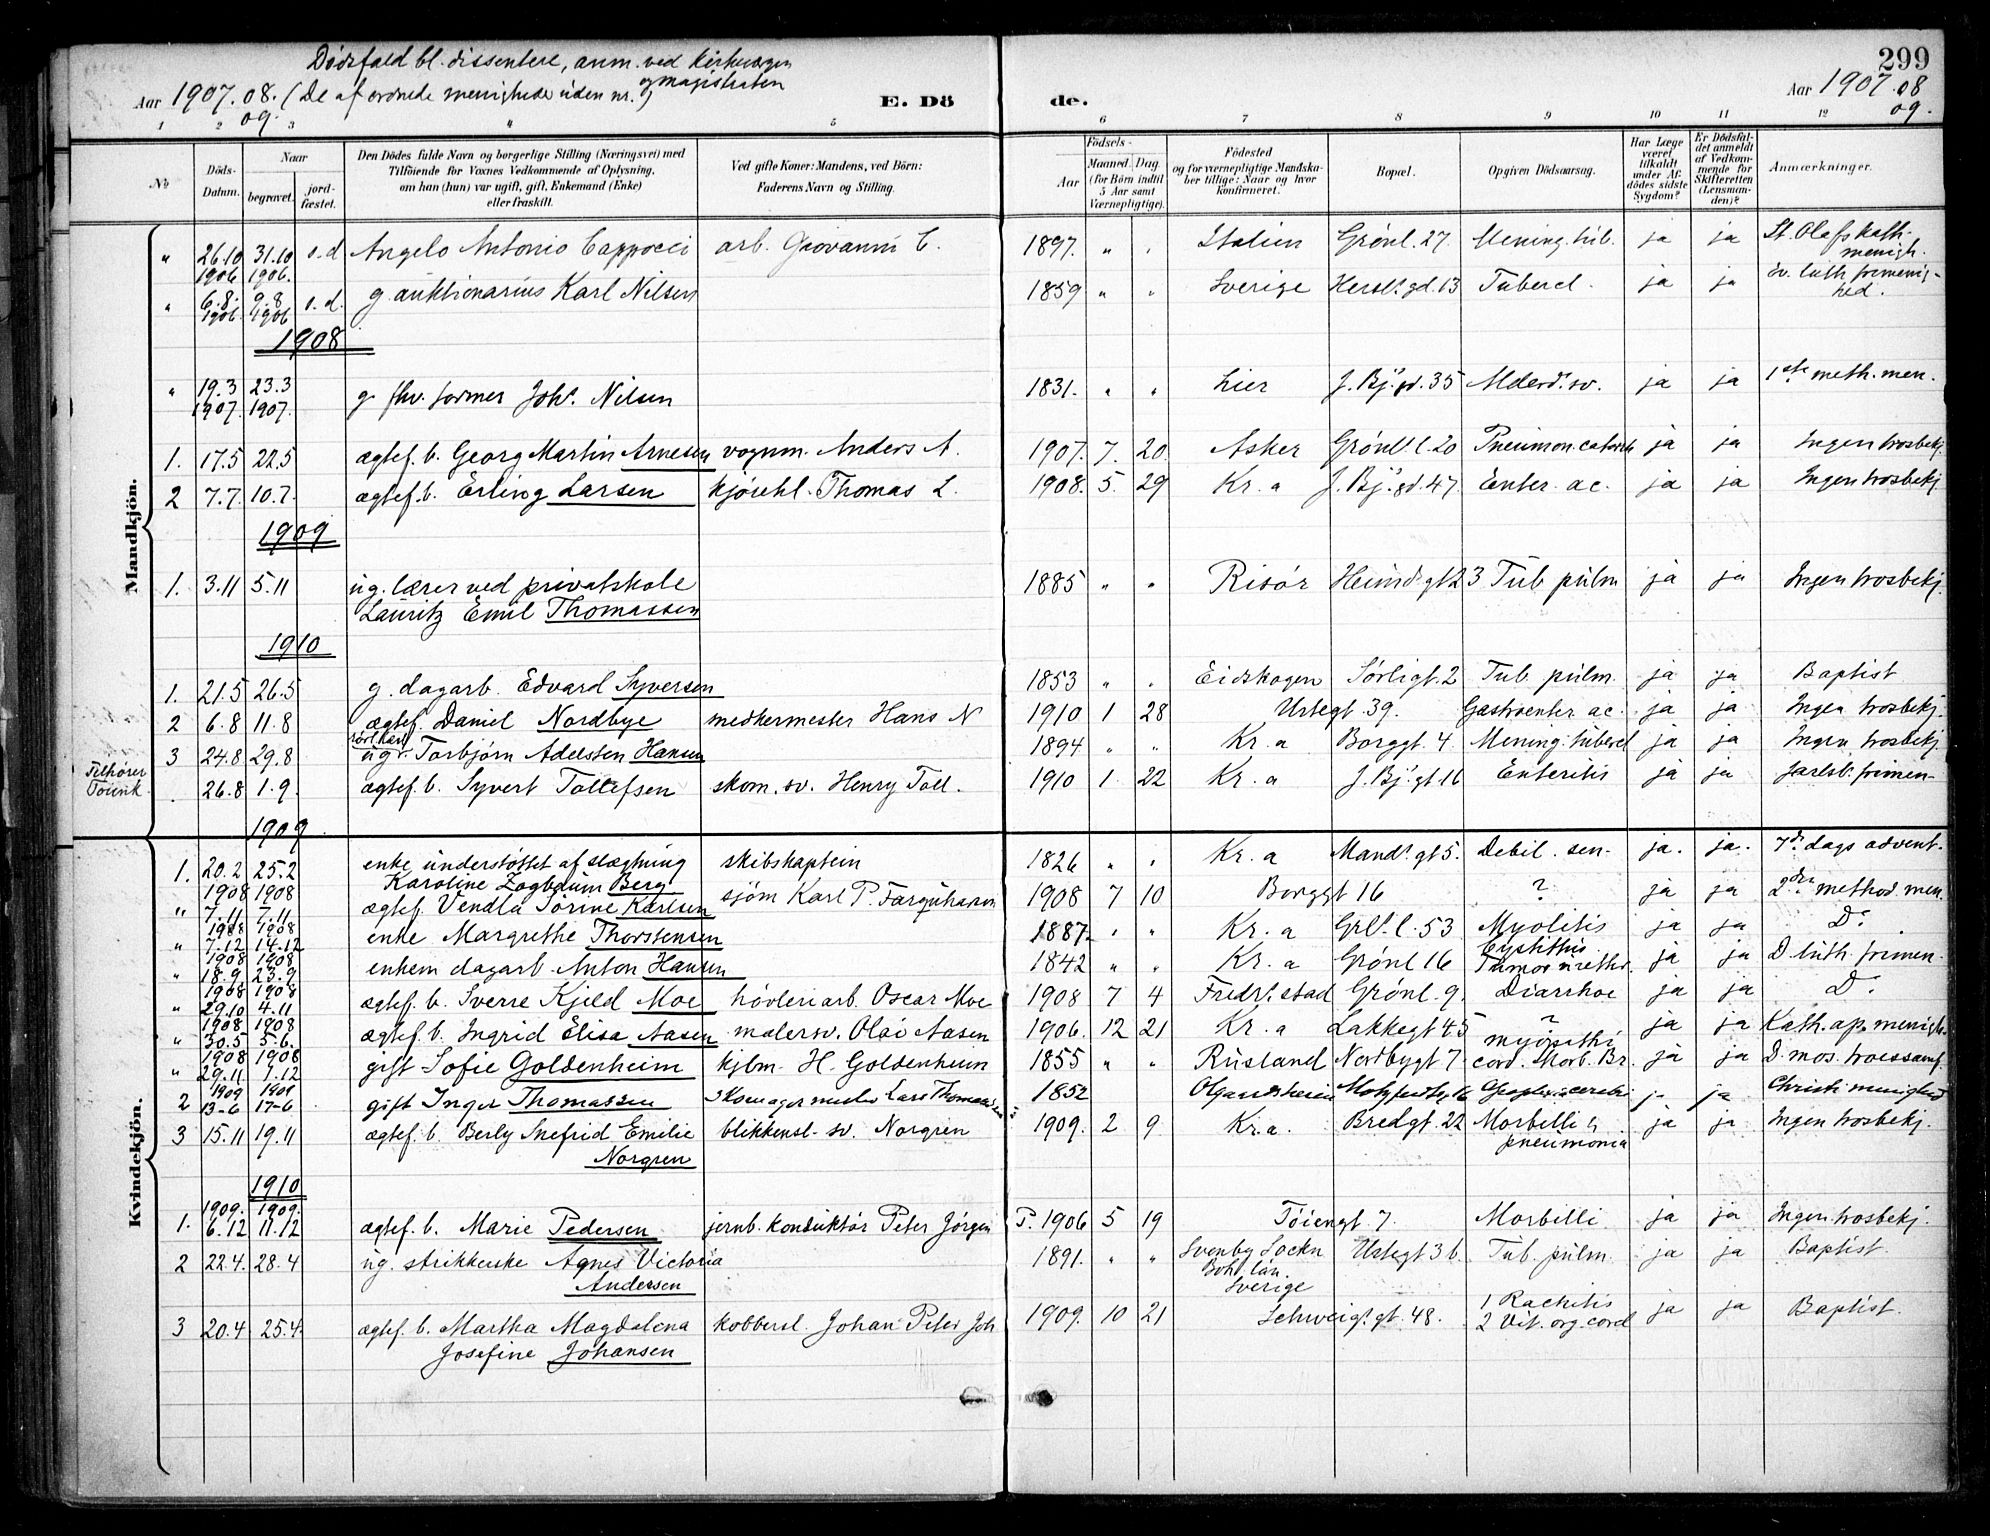 299
Dødsfald bl. dissentere, anm. ved kirkevergen
og magistraten
Aar 1907.08. (De af ordnede menighede uden nr.)
09.
E. Dö de.
Aar 1907.08
09.
1 2 3 4 5 6 7 8 9 10 11 12
№
Döds-Datum.
Naar
begravet. jordfæstet.
Den Dödes fulde Navn og borgerlige Stilling (Næringsvei) med
Tilföiende for Voxnes Vedkommende af Oplysning,
om han (hun) var ugift, gift, Enkemand (Enke)
eller fraskilt.
Ved gifte Koner: Mandens, ved Börn:
Faderens Navn og Stilling.
Födsels-
Aar Maaned. Dag.
(for Börn indtil
5 Aar samt
Værnepligtige).
Födested
og for værnepligtige Mandska-
ber tillige: Naar og hvor
konfirmeret.
Bopæl.
Opgiven Dödsaarsag.
Har Læge
været
tilkaldt
under Af-
dödes sidste
Sygdom?
Er Dödsfal-
det anmeldt
af Vedkom-
mende for
Skifteretten
(Lensman-
den)?
Anmærkninger.
Mandkjön.
" 26.10 1906 31.10 1906. s.d Angelo Antonio Cappocci arb. Giovanni C. 1897. " " Italien Grönl. 27. Mening. tub. ja ja St. Olafs kath. menigh.
" 6.8. 1906 9.8 1906 s.d. g. auktionarius Karl Nilsen 1859 " " Sverige Hersl. gd. 13 Tubercl. ja ja Ev. luth frimenighed.
1908
" 19.3 1907. 23.3 1907. g. fhv. former Joh. Nilsen 1831. " " Lier J. Bj. gd. 35 Alderd. sv. ja ja 1ste meth. men.
1. 17.5 22.5 ægtef. b. Georg Martin Arnesen vognm. Anders A. 1907. 7. 20. Asker Grönl. l. 20 Pneumon. catarrh ja ja Ingen trosbekj.
2 7.7. 10.7. ægtef. b. Erling Larsen kjörekl. Thomas L. 1908. 5. 29 Kr.a J. Bj. gd. 47. Enter. ac. ja ja Ingen trosbekj.
1909
1. 3.11 5.11 ug. lærer ved privatskole
Lauritz Emil Thomassen 1885 " " Risör Heimd. gt 23 Tub. pulm ja ja Ingen trosbekj.
1910
1. 21.5 26.5 g. dagarb. Edvard Syversen 1853 " " Eidskogen Sörligt. 2 Tub. pulm. ja ja Baptist
2 6.8 11.8 ægtef. Daniel Nordbye medhermester Hans N 1910 1 28 Urtegt 39. Gastroenter ac. ja ja Ingen trosbekj.
3 24.8 29.8 ug. Torbjörn Adelsten Hansen 1894 " " Kr.a Borggt. 4 Mening. tubercl ja ja Ingen trosbekj.
Tilhører
Töienk.
26.8 1.9. ægtef. b. Syvert Tollefsen skom. sv. Henry Toll. 1910 1 22 Kr.a J. Bj. gt 16 Enteritis ja ja Jarlsb. frimen-
1909
Kvindekjön.
1. 20.2 25.2 enke understöttet af slægtning
Karoline Zogbaum Berg skibskaptein 1826 " " Kr.a Mand. gt 5. Debil. sen- ja. ja. 7de dags advent.
" 1908 7.11 1908 7.11. ægtef. Vendla Sörine Karlsen sjöm Karl P. Farquharson 1908 7 10 Borggt 16 ? ja ja 2den method. men.
" 1908 7.12 1908 14.12 enke Margrethe Thorstensen 1887 " " Kr.a Grl. l. 53 Myolitis ja ja Do.
" 1908 18.9. 1908 23.9 enkem dagarb. Anton Hansen 1842 " " Kr.a Grönl 16 Cystithis Tumor urethr. ja ja D. luth. frimen.
" 1908 29.10 1908 4.11 ægtef. b. Sverre Kjeld Moe hövleriarb. Oscar Moe 1908 7 4 Fredr. stad Grönl. 9. Diarrhoe ja ja Do.
" 1908 30.5 1908 5.6. ægtef. b. Ingrid Elisa Aasen malersv. Olai Aasen 1906. 12 21 Kr.a Lakkegt 45 ? ja ja Kath. ap. menigh.
" 1908 29.11 1908 1.12 gift Sofie Goldenheim kjbm. H. Goldenheim 1855 " " Rusland Nordbygt 7. myopathi cord. Morb. Br. ja ja D. mos. troessamf.
2 1909 13-6 1909 17-6 gift Inger Thomassen Skomagermester Lars Thomassen 1852 ja ja Christi menighed
3 15.11 19.11 ægtef. b. Berly Snefrid Emilie
Norgren blikkensl. sv. Norgren 1909. 2 9 Kr.a. Bredgt. 22 Morbilli & pneumonia ja ja Ingen trosbekj.
1910
1. 1909. 6.12 1909. 11.12 ægtef. b. Marie Pedersen jernb. konduktör Peter Jörgen P. 1906 5 19 Töiengt 7. Morbilli ja ja Ingen trosbekj.
2 22.4. 28.4 ug. strikkerske Agnes Victoria
Andersen 1891. " " Svenby Sockn
Boh. län.
Sverige Urtegt 3 b. Tub. pulm. ja ja Baptist.
3 20.4 25.4. ægtef. b. Martha Magdalena
Josefine Johansen kobbersl. Johan Peter Joh 1909. 10 21 Schweig. gt. 48. 1 Rachitis
2 Vit. org. cord ja ja Baptist.